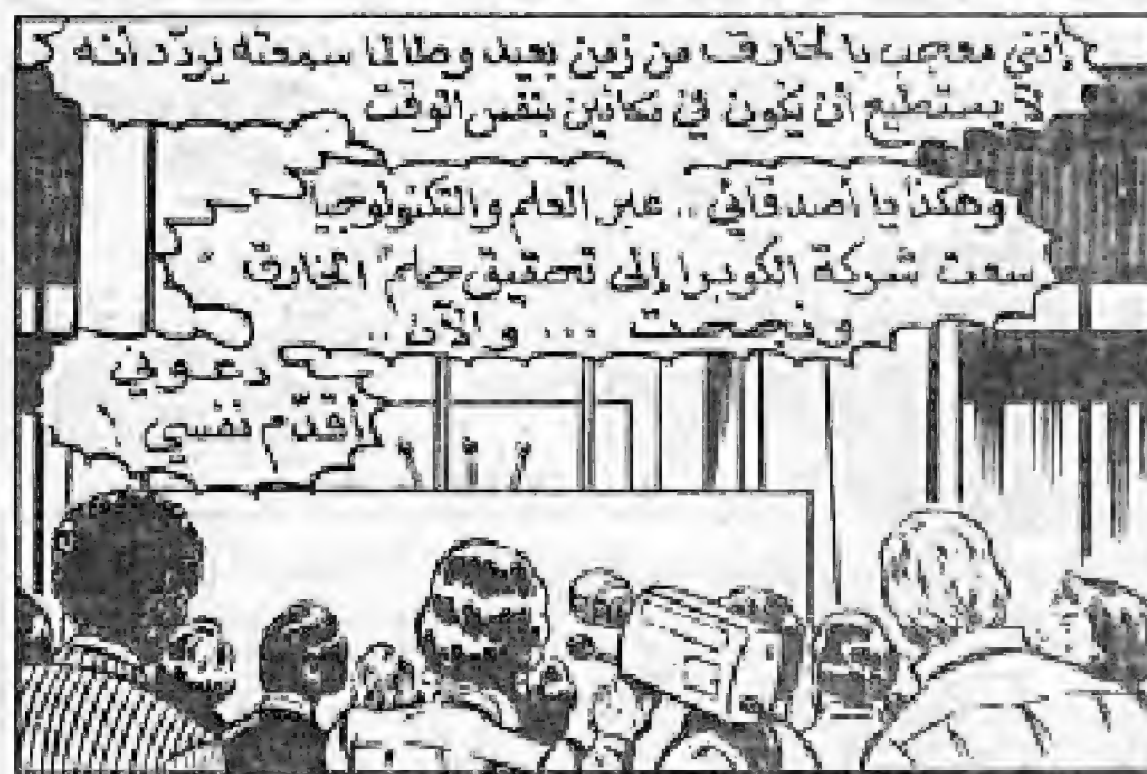 إنني معجب بالخارق من زمن بعيد وطالما سمعته يردّد أنه
لا يستطيع أن يكون في مكانين بنفس الوقت
وهكذا يا أصدقائي .. عبر العلم والتكنولوجيا
سعت شركة الكوبرا إلى تحقيق حلم الخارق
ونجحت ... والآن ..
دعوني
أقدّم نفسي